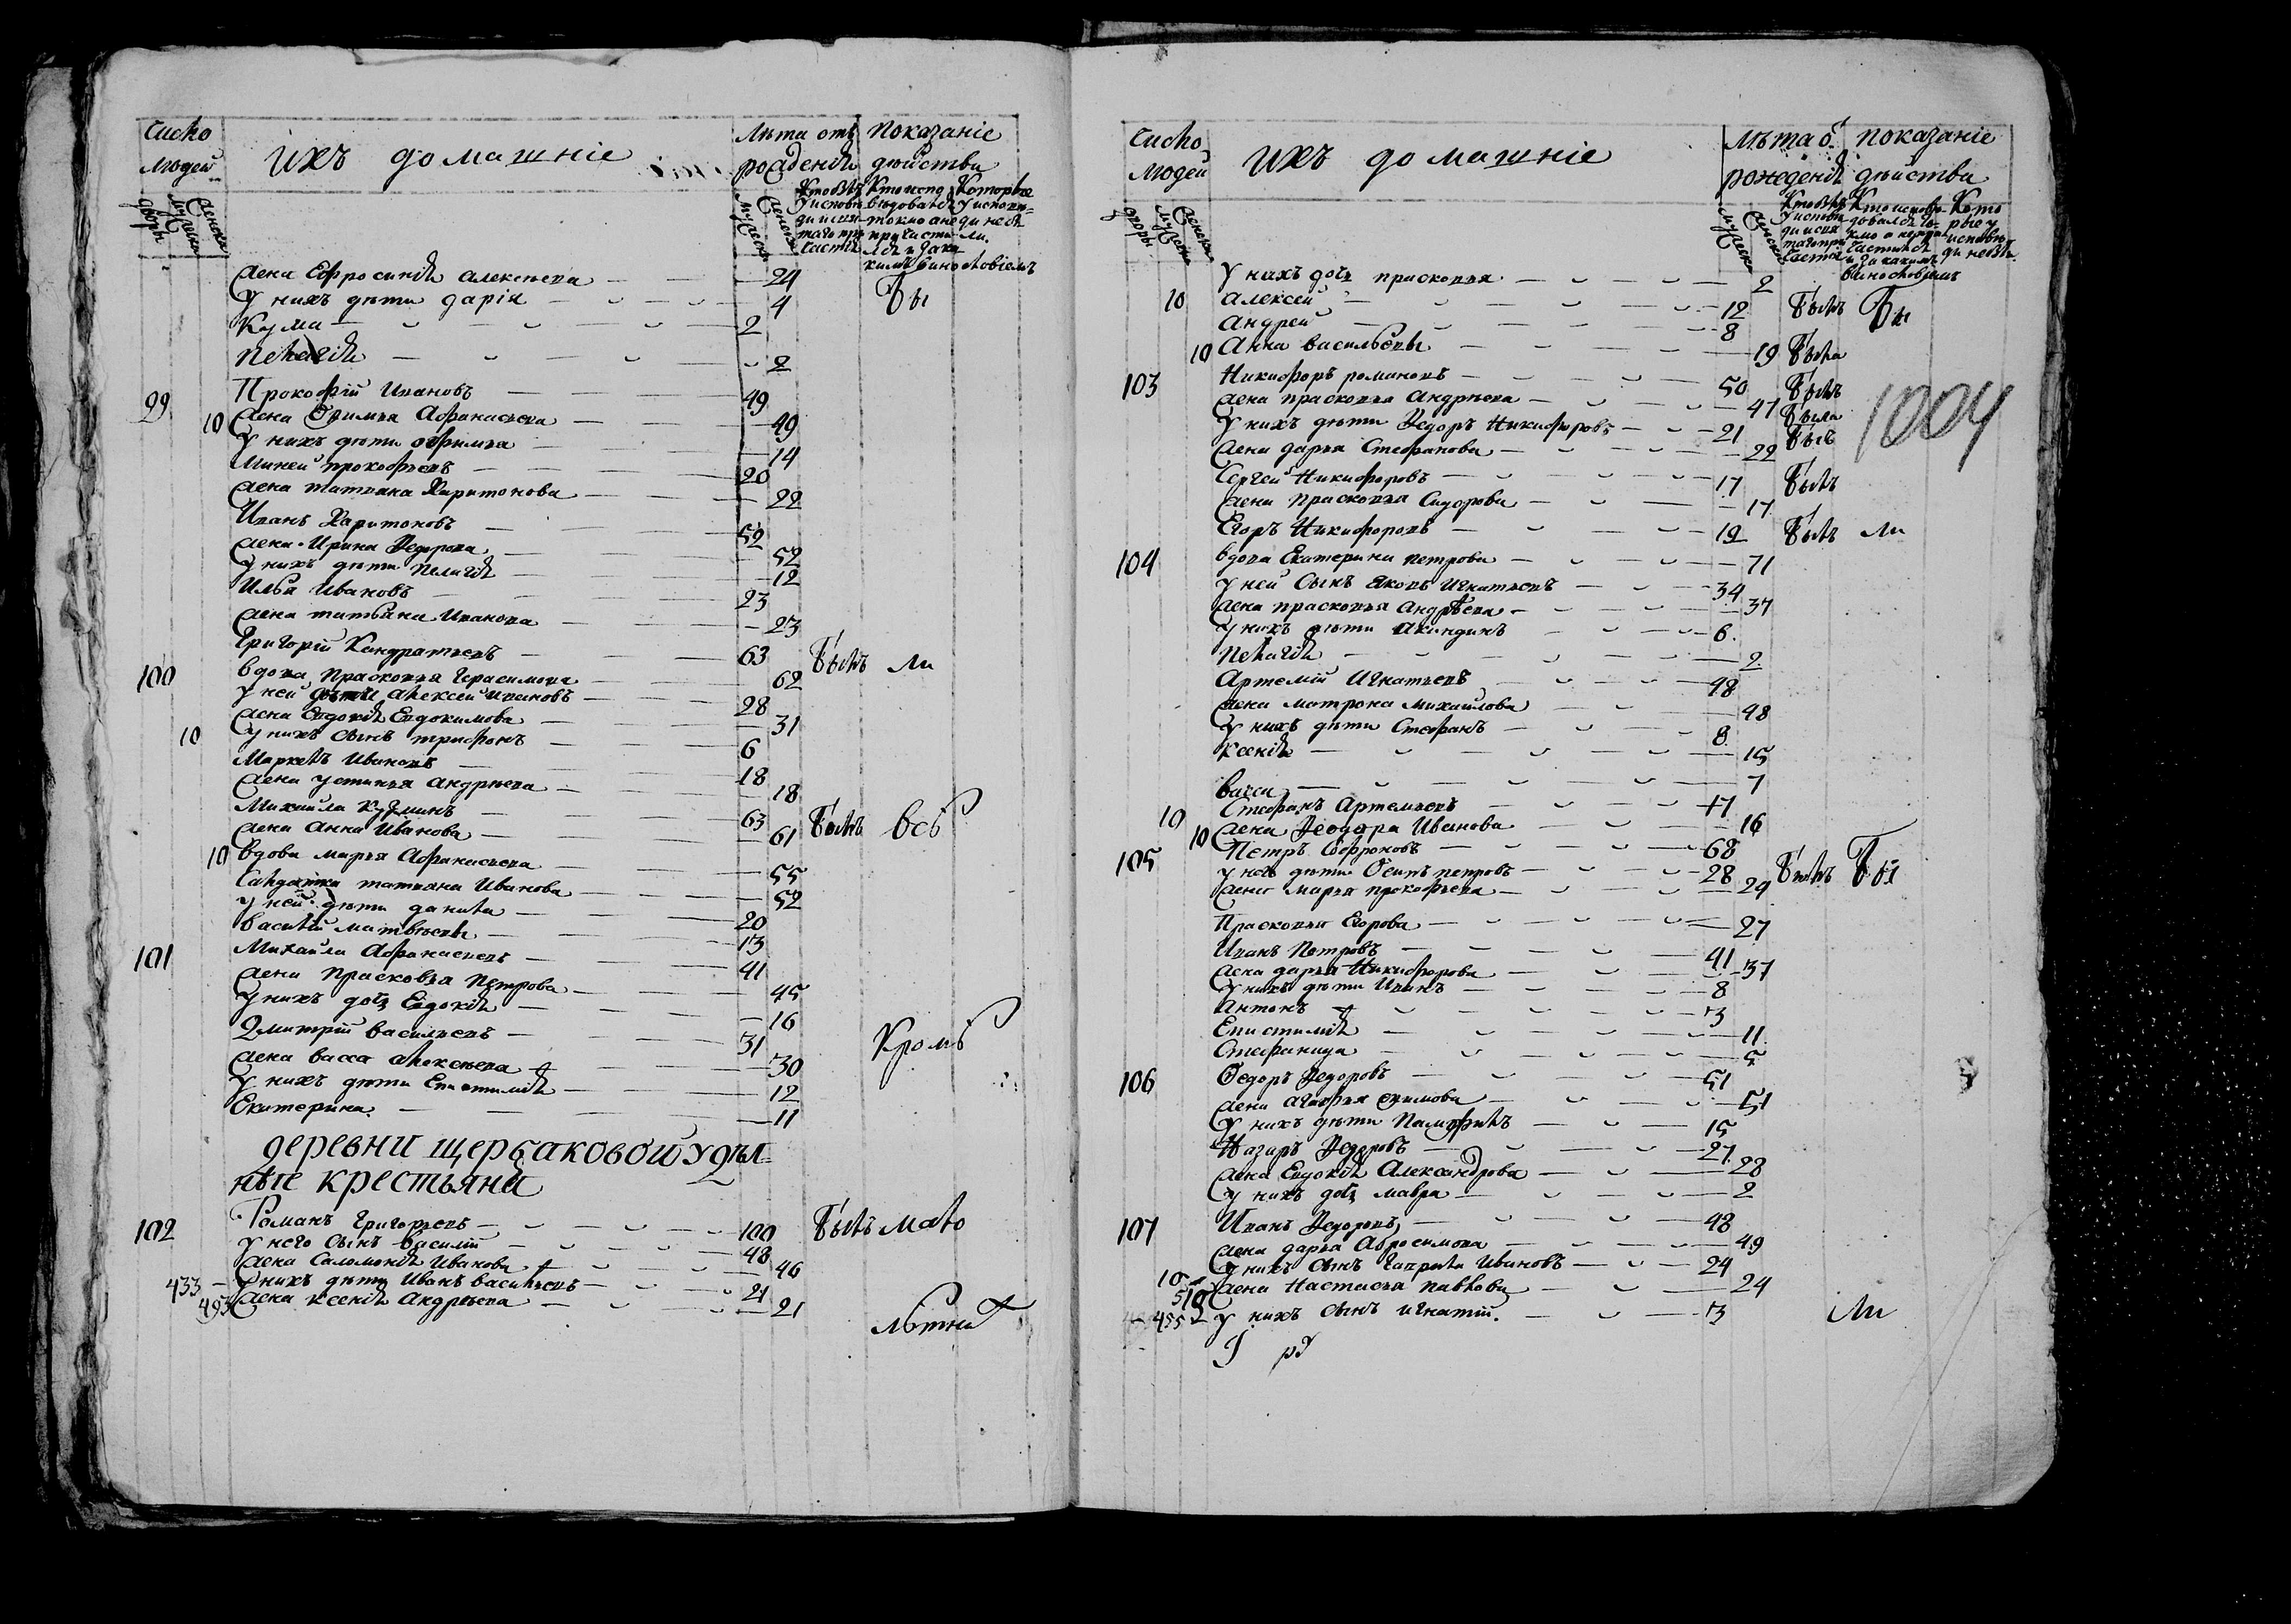 число людей
ихъ домашніе
лѣта отъ рожденія
показаніе дѣйства
дворы
мужеска
женска
жена Ефросинія Алексѣева 24 Бы
у нихъ дѣти Дарія 4
Кузма 2
Пелагія 2
99 Прокофій Ивановъ 49
10 жена Афанасьева 49
у нихъ дѣти 14
Миней Прокофьевъ 20
жена Татьяна Харитонова 22
Иванъ Харитоновъ 52
жена Ирина Ѳедорова 52
у нихъ дѣти Пелагія 12
Илья Ивановъ 23
жена Татьяна Иванова 23
Григорій Кондратьевъ 63 Былъ ли
100 вдова Прасковья Герасимова 62
у ней дѣти Алексей Ивановъ 28
жена Евдокія Евдокимова 31
10 у нихъ сынъ Трифонъ 6
Маркелъ Ивановъ 18
жена Устинья Андрѣева 18
Михайла Кузминъ 63 Былъ всѣ
жена Анна Иванова 61
10 вдова Марья Афанасьева 55
Салдатка Татьяна Иванова 52
у ней дѣти Данила 20
Василій Матвѣевъ 13
101 Михайла Афанасьевъ 41
жена Прасковья Петрова 45
у нихъ дочь Евдокія 16
Дмитрій Васильевъ 31 Кромѣ
жена Васса Алексѣева 30
у нихъ дѣти Епистимія 12
Екатерина 11
деревни Щербаковой удѣл=
ные крестьяне
102 Романъ Григорьевъ 100 Былъ мало
у него сынъ Василій 48
жена Саломонія Иванова 46
433 у нихъ дѣти Иванъ Васильевъ 21
495 жена Ксенія Андрѣева 21
лѣтни
число людей
ихъ домашніе
лѣта о рожденія
показаніе дѣйства
дворы
мужеска
женска
у нихъ дочь Прасковья 2
10 Алексей 12 Былъ Бы
Андрей 8
10 Анна Васильева 19 Была
103 Никифоръ Романовъ 50 Былъ
жена Прасковья Андрѣева 47 Была
у нихъ дѣти Ѳедоръ Никифоровъ 21 Былъ
1004
жена Дарья Стефанова 22
Сергей Никифоровъ 17 Былъ
жена Прасковья Сидорова 17
Егоръ Никифоровъ 19 Былъ ли
104 вдова Екатерина Петрова 71
у ней сынъ Яковъ Игнатьевъ 34
жена Прасковья Андрѣева 37
у нихъ дѣти Акиндинъ 6
Пелагія 2
Артемій Игнатьевъ 48
жена Матрона Михайлова 48
у нихъ дѣти Стефанъ 8
Ксенія 15
Васса 7
10 Стефанъ Артемьевъ 17
10 жена Ѳеодора Иванова 16
105 Петръ Софроновъ 68
у него дѣти Осипъ Петровъ 28 Былъ Бы
жена Марья Прокофьева 29
Прасковья Егорова 27
Иванъ Петровъ 41
жена Дарья Никифорова 37
у нихъ дѣти Иванъ 8
Антонъ 3
Епистимія 11
Стефанида 5
106 Ѳедоръ Ѳедоровъ 51
жена Агафья 51
у нихъ дѣти Памфилъ 15
Назаръ Ѳедоровъ 27
жена Евдокія Александрова 28
у нихъ дочь Мавра 2
107 Иванъ Ѳедоровъ 48
жена Дарья Абросимова 49
10 у нихъ сынъ Гаврила Ивановъ 24
510 жена Настасья Павлова 24
455 у нихъ сынъ Игнатій. 3 ли